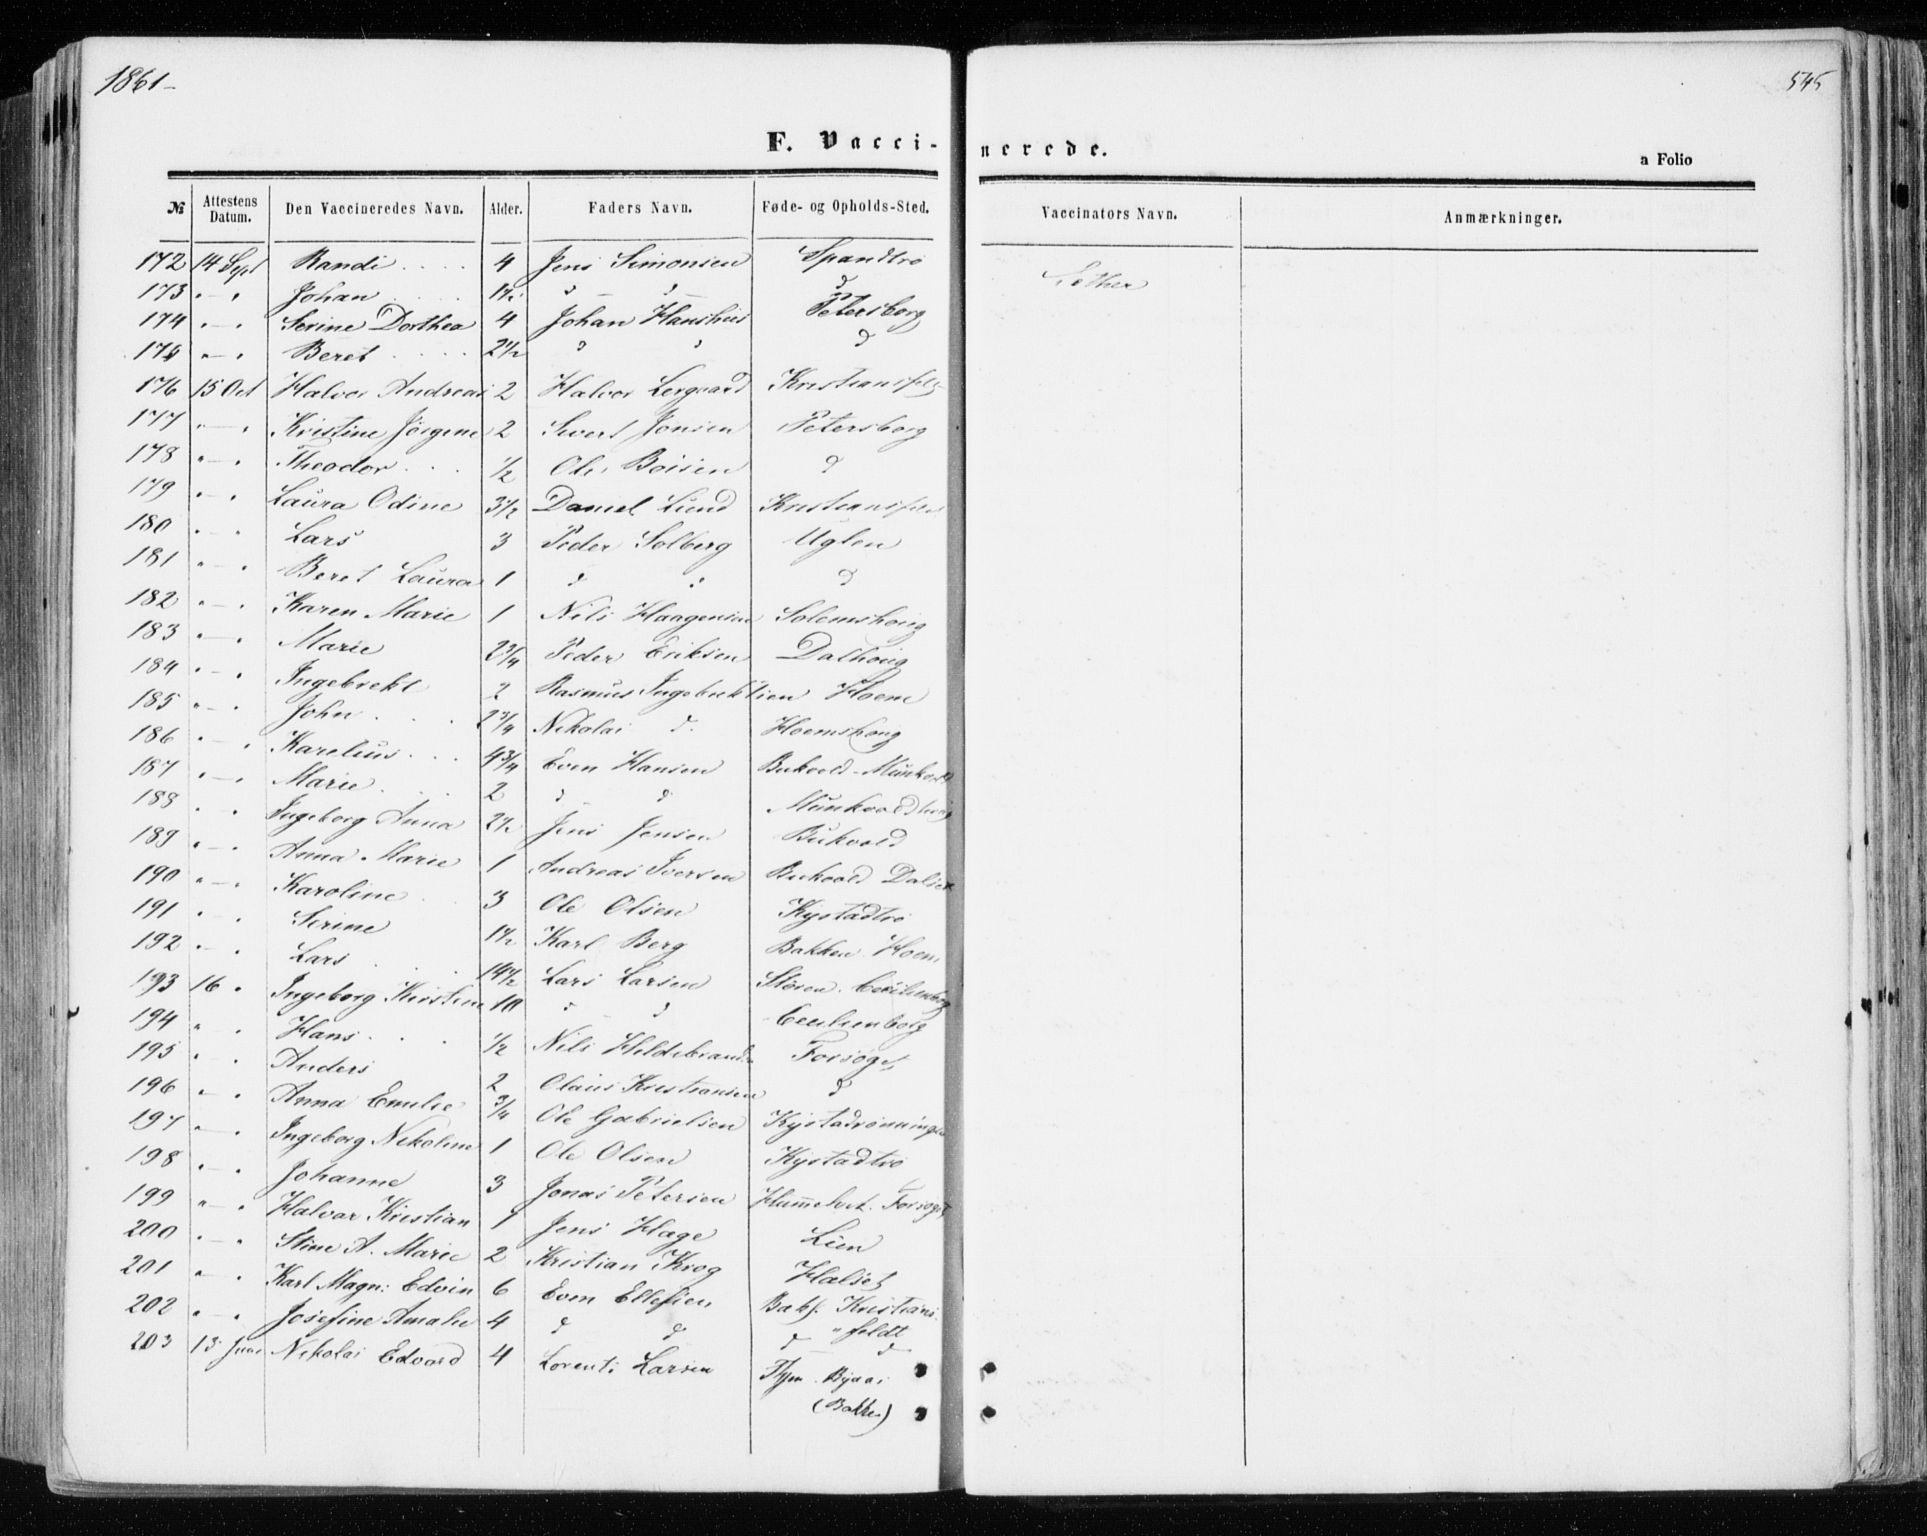 1861-
545
F. Vacci-
nerede.
a Folio
№ Attestens Datum. Den Vaccineredes Navn. Alder. Faders Navn. Føde- og Opholds-Sted. Vaccinators Navn. Anmærkninger.
172 14 Sept Randi 4 Jens Simonsen Spandtrø
173 " - " Johan 1½ d d d
174 " - " Serine Dorthea 4 Johan Petersborg
175 " - " Beret 2½ d d d
176 15 Oct Halvor Andreas 2 Halvor Lergaard Kristiansfeldt
177 " - " Kristine Jörgine 2 Sivert Jonsen Petersborg
178 " - " Theodor ½ Ole Boisen d
179 " - " Laura Odine 3½ Daniel Lund Kristiansfeldt
180 " - " Lars 3 Peder Solberg Uglen
181 " - " Beret Laura 1 d d d
182 " - " Karen Marie 1 Nils Haagensen Solemshoug
183 " - " Marie 2¾ Peder Eriksen Dalhoug
184 " - " Ingebrekt 2 Rasmus Ingebrektsen Hoem
185 " - " John 2¾ Nikolai d. Hoemshoug
186 " - " Karelius 4¾ Even Hansen Bukvold-Munkvold
187 " - " Marie 2 d d Munkvoldhoug
188 " - " Ingeborg Anna 2½ Jens Jensen Bukvold
189 " - " Anna Marie 1 Andreas Iversen Bukvold Dalset
190 " - " Karoline 3 Ole Olsen Kystadtrø
191 " - " Serine 1½ Karl Berg Bakken Hoem
192 " - " Lars 14½ Lars Larsen Støren. Cecilienborg
193 16 " Ingeborg Kirstine 10 d d Cecilienborg
194 " " Hans ½ Nils Hildebrandsen Forsøget
195 " " Anders 2 Olaus Kristiansen d
196 " - " Anna Emilie ¾ Ole Gabrielsen Kystadrønningen
197 " - " Ingeborg Nikoline 1 Ole Olsen Kystadtrø
198 " - " Johanne 3 Jonas Petersen Forsøget
199 " - " Halvar Kristian 1 Jens Hage Lien
200 " - " Stine A. Marie 2 Kristian Krog Halset
201 " - " Karl Magn: Edvin 6 Even Ellefsen Bakk. Kristians
" feldt
202 " - " Josefine Amalie 4 d d d d
203 13 Juni Nikolai Edvard 4 Lorents Larsen Byaas
(Bakke)